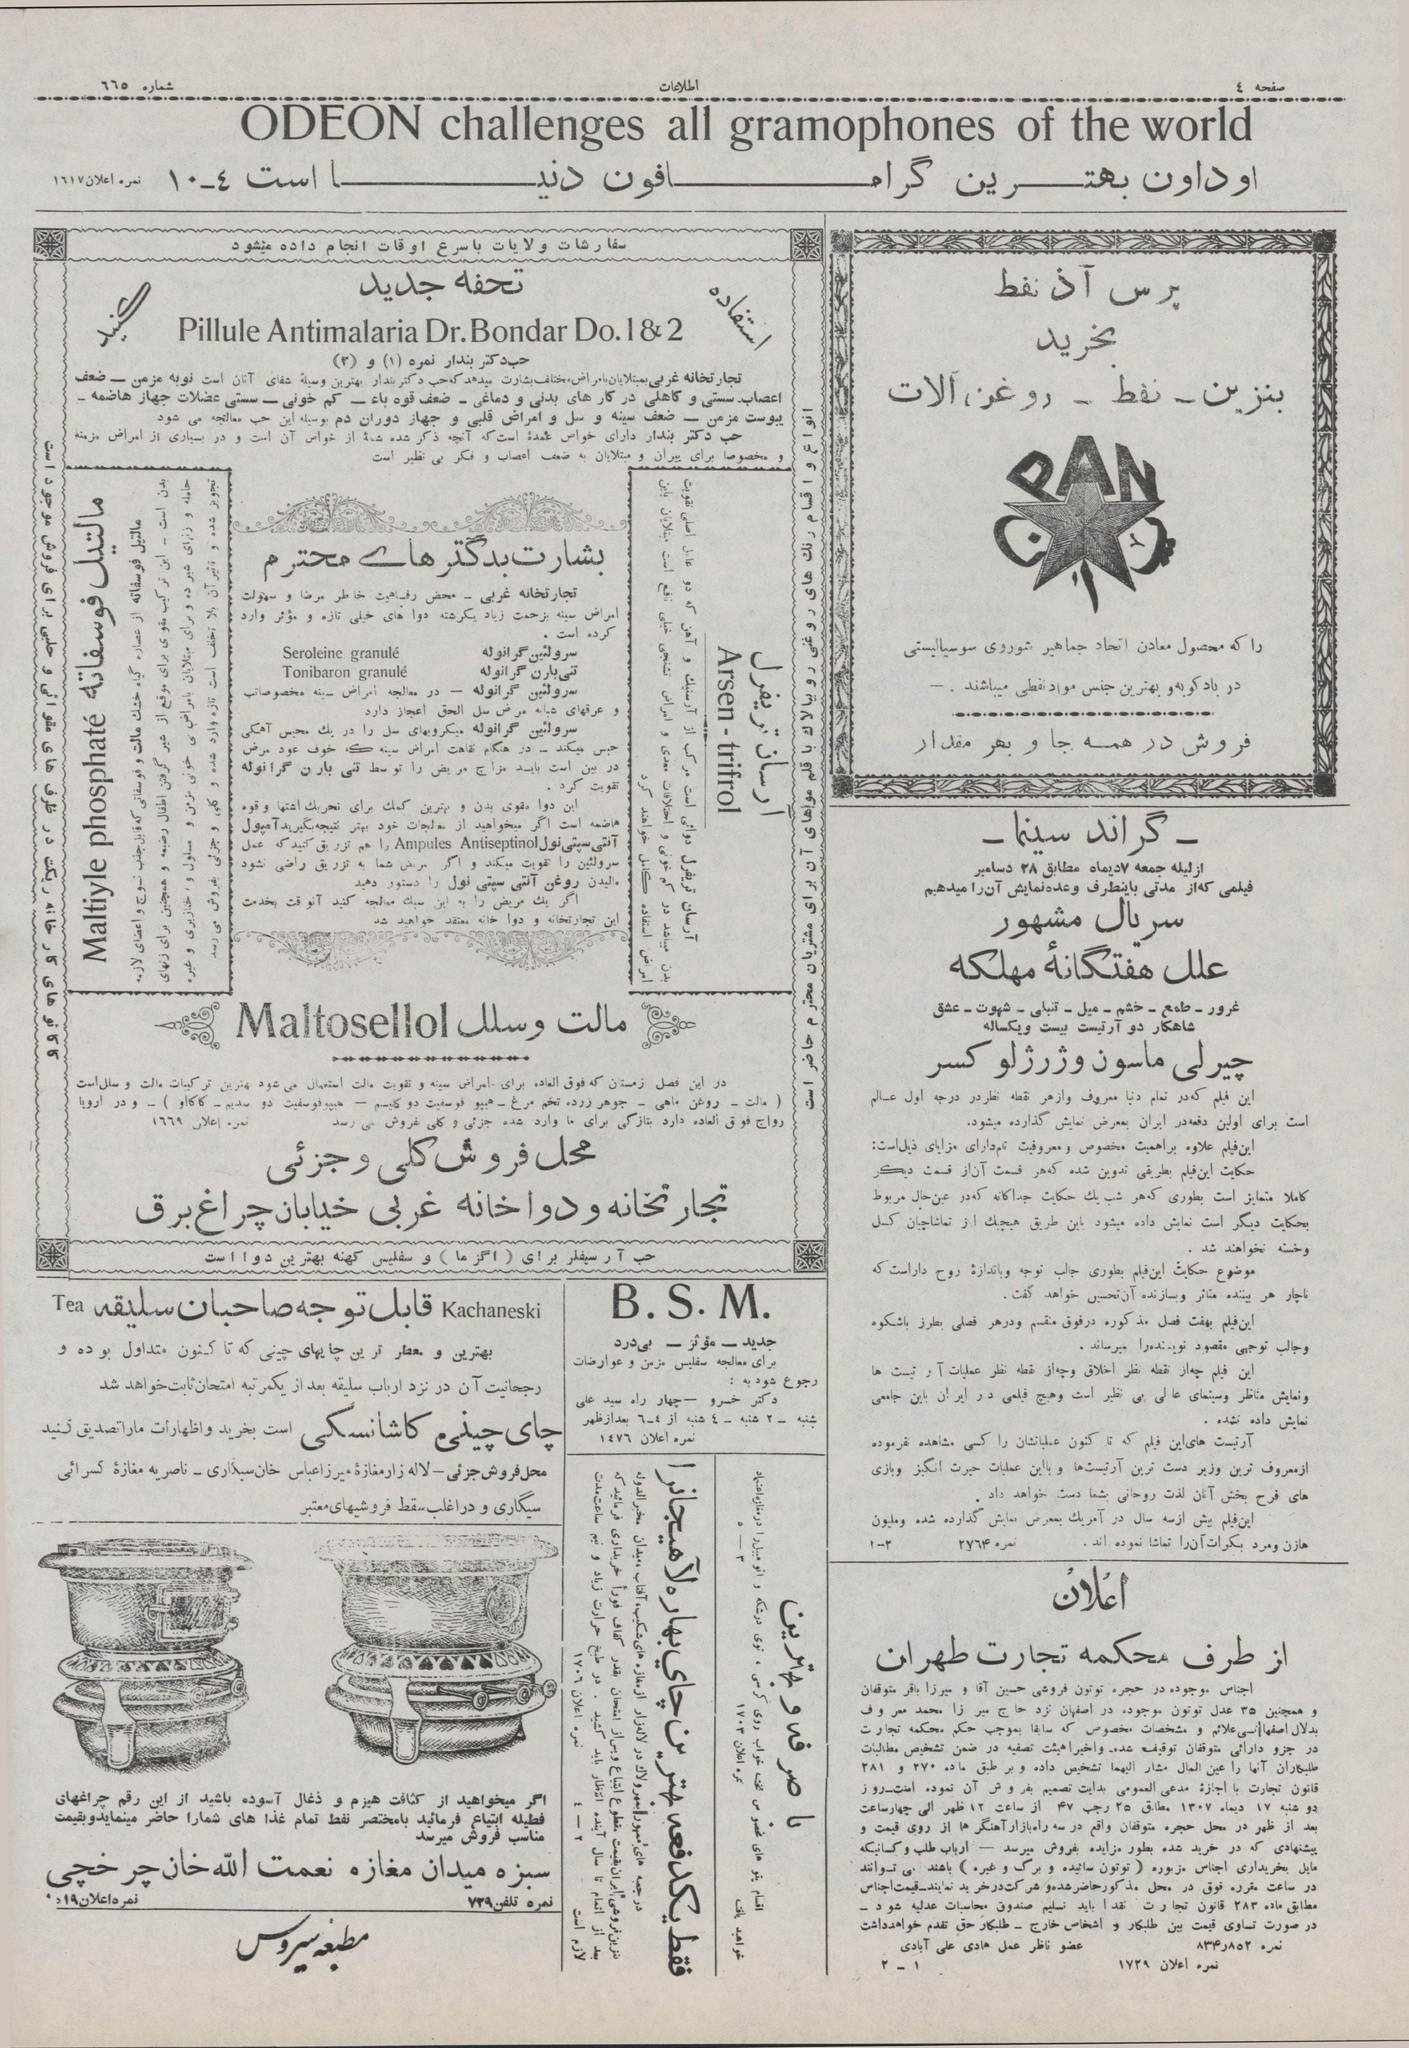 صفحه ٤
اطلاعات
شماره ٦٦٥
ODEON challenges all gramophones of the world
اوداون بهترین گرامافون دنیا است ٤-١٠ نمره اعلان ١٦١٧
پرس آذ نفط
بخرید
بنزین - نفط - روغن آلات
PAN
را که محصول معادن اتحاد جماهیر شوروی سوسیالیستی
در بادکوبه و بهترین جنس مواد نفطی میباشند . -
فروش در همه جا و بهر مقدار
- گراند سینما -
از لیله جمعه ۷ دیماه مطابق ۲۸ دسامبر
فیلمی که از مدتی باینطرف وعده نمایش آن را میدهیم
سریال مشهور
علل هفتگانهٔ مهلکه
غرور - طمع - خشم - میل - تنبلی - شهوت - عشق
شاهکار دو آرتیست بیست و یکساله
چیرلی ماسون و ژرژ لو کسر
این فیلم که در تمام دنیا معروف و از هر نقطه نظر در درجه اول عالم
است برای اولین دفعه در ایران بمعرض نمایش گذارده میشود.
این فیلم علاوه بر اهمیت مخصوص و معروفیت تام دارای مزایای ذیل است:
حکایت این فیلم بطریقی تدوین شده که هر قسمت آن از قسمت دیگر
کاملا متمایز است بطوری که هر شب یك حکایت جداگانه که در عین حال مربوط
بحکایت دیگر است نمایش داده میشود باین طریق هیچیك از تماشاچیان کسل
و خسته نخواهند شد .
موضوع حکایت این فیلم بطوری جالب توجه و باندازهٔ روح دار است که
ناچار هر بیننده متاثر و بسازنده آن تحسین خواهد گفت.
این فیلم بهفت فصل مذکوره در فوق منقسم و در هر فصلی بطرز باشکوه
و جالب توجهی مقصود نویسنده را میرساند .
این فیلم چه از نقطه نظر اخلاق و چه از نقطه نظر عملیات آرتیست ها
و نمایش مناظر و سینمای عالی بی نظیر است و هیچ فیلمی در ایران باین جامعی
نمایش داده نشده .
آرتیست های این فیلم که تا کنون عملیاتشان را کسی مشاهده نفرموده
از معروف ترین و زبر دست ترین آرتیست ها و با این عملیات حیرت انگیز و بازی
های فرح بخش آنان لذت روحانی بشما دست خواهد داد .
این فیلم بیش از سه سال در آمریك بمعرض نمایش گذارده شده و ملیون
ها زن و مرد بکرات آن را تماشا نموده اند . نمره ۲۷۶۴ ۲-۱
اعلان
از طرف محکمه تجارت طهران
اجناس موجوده در حجره توتون فروشی حسین آقا و میرزا باقر متوقفان
و همچنین ۳۵ عدل توتون موجوده در اصفهان نزد حاج میرزا محمد معروف
بدلال اصفهانی علائم و مشخصات مخصوص که سابقا بموجب حکم محکمه تجارت
در جزو دارائی متوقفان توقیف شده و اخیرا هیئت تصفیه در ضمن تشخیص مطالبات
طلبکاران آنها را عین المال مشار الیهما تشخیص داده و بر طبق ماده ۲۷۰ و ۲۸۱
قانون تجارت با اجازهٔ مدعی العمومی بدایت تصمیم بفروش آن نموده است روز
دو شنبه ۱۷ دیماه ۱۳۰۷ مطابق ۲۵ رجب ۴۷ از ساعت ۱۲ ظهر الی چهار ساعت
بعد از ظهر در محل حجره متوقفان واقع در سه راه بازار آهنگرها از روی قیمت و
پیشنهادی که در خرید شده بطور مزایده بفروش میرسد - ارباب طلب و کسانیکه
مایل بخریداری اجناس مزبوره ( توتون سائیده و برگ و غیره ) باشند می توانند
در ساعت مقرره فوق در محل مذکور حاضر شده و شرکت در خرید نمایند - قیمت اجناس
مطابق ماده ۲۸۳ قانون تجارت نقدا باید تسلیم صندوق محاسبات عدلیه شود -
در صورت تساوی قیمت بین طلبکار و اشخاص خارج - طلبکار حق تقدم خواهد داشت
نمره ۸۳۴ر۸۵۲ عضو ناظر عمل هادی علی آبادی
نمره اعلان ۱۷۲۹ ۱ - ۲
سفارشات ولایات باسرع اوقات انجام داده میشود
انواع و اقسام رنك های روغنی رو بپالاك با قلم مو اهای آن برای مشتریان محترم حاضر است
تحفه جدید
استفاده
کنید
Pillule Antimalaria Dr. Bondar Do. 1 & 2
حب دکتر بندار نمره (۱) و (۲)
تجارتخانه غربی بمبتلایان بامراض مختلف بشارت میدهد که حب دکتر بندار بهترین وسیلهٔ شفای آنان است نوبه مزمن - ضعف
اعصاب سستی و کاهلی در کار های بدنی و دماغی - ضعف قوه باء - کم خونی - سستی عضلات جهاز هاضمه -
یبوست مزمن - ضعف سینه و سل و امراض قلبی و جهاز دوران دم بوسیله این حب معالجه می شود
حب دکتر بندار دارای خواص عمدهٔ است که آنچه ذکر شده شمهٔ از خواص آن است و در بسیاری از امراض مزمنه
و مخصوصا برای پیران و مبتلایان به ضعف اعصاب و فکر بی نظیر است
آرسان تریفرل
Arsen-trifrol
آرسان تریفرل دوائی است مرکب از آرسنیك و آهن که دو عامل اصلی تقویت
بدن میباشد در کم خونی و اختلافات معدی و امراض تشنجی خیلی نافع است مبتلایان باین
امراض استفاده کامل خواهند کرد
بشارت بدکترهای محترم
تجارتخانه غربی - محض رفاهیت خاطر مرضا و سهولت
امراض سینه بزحمت زیاد یکرشته دوا های خیلی تازه و مؤثر وارد
کرده است .
سرولئین گرانوله Seroleine granulé
تنی بارن گرانوله Tonibaron granulé
سرولئین گرانوله - در معالجه امراض سینه مخصوصا تب
و عرقهای شبانه مرض سل الحق اعجاز دارد
سرولئین گرانوله میکروبهای سل را در یك محبس آهکی
حبس میکند - در هنگام نقاهت امراض سینه که خوف عود مرض
در بین است باید مزاج مریض را توسط تنی بارن گرانوله
تقویت کرد .
این دوا مقوی بدن و بهترین کمك برای تحریك اشتها و قوه
هاضمه است اگر میخواهید از معالجات خود بهتر نتیجه بگیرید آمپول
آنتی سپتی نول Ampules Antiseptinol را هم تزریق کنید که عمل
سرولئین را تقویت میکند و اگر مریض شما به تزریق راضی نشود
مالیدن روغن آنتی سپتی نول را دستور دهید
اگر یك مریض را به این سبك معالجه کنید آنوقت بخدمت
این تجارتخانه و دوا خانه معتقد خواهید شد
مالتیل فوسفاته Maltiyle phosphaté
مالتیل فوسفاته از عصاره گیاه خشك مالت و فوسفاتی که قابل جلب نسوج و اعضای لازمه
بدن است - این ترکیب مقوی برای موقع از شیر گرفتن اطفال رضیعه و همچنین برای زنهای
حامله و زنهای شیرده و برای مبتلایان بامراض کم خونی مزمن و مسلول و خنازیری و غیره
تجویز شده و تاثیر آن بلا تخلف است تازه وارد شده و کلی و جزئی بفروش می رسد
کاکائو های کارخانه ریکت در ظرف های مقوائی و حلبی برای فروش موجود است
مالت و سلل Maltosellol
در این فصل زمستان که فوق العاده برای امراض سینه و تقویت مالت استعمال می شود بهترین ترکیبات مالت و سلل است
( مالت - روغن ماهی - جوهر زرده تخم مرغ - هیپو فوسفیت دو کلسیم - هیپوفوسفیت دو سدیم - کاکائو ) - و در اروپا
رواج فوق العاده دارد بتازگی برای ما وارد شده جزئی و کلی فروش می رسد نمره اعلان ١٦٦٩
محل فروش کلی و جزئی
تجارتخانه و دواخانه غربی خیابان چراغ برق
حب آرسیفلر برای ( اگزما ) و سفلیس کهنه بهترین دوا است
B. S. M.
جدید - مؤثر - بی درد
برای معالجه سفلیس مزمن و عوارضات
رجوع شود به :
دکتر خسرو - چهار راه سید علی
شنبه - ۲ شنبه - ٤ شنبه از ٤-٦ بعد از ظهر
نمره اعلان ۱٤۷٦
Kachaneski قابل توجه صاحبان سلیقه Tea
بهترین و معطر ترین چایهای چینی که تا کنون متداول بوده و
رجحانیت آن در نزد ارباب سلیقه بعد از یکمرتبه امتحان ثابت خواهد شد
چای چینی کاشانسکی است بخرید و اظهارات ما را تصدیق کنید
محل فروش جزئی - لاله زار مغازهٔ میرزا عباس خان سیگاری - ناصریه مغازهٔ کسرائی
سیگاری و در اغلب سقط فروشیهای معتبر
با صرفه و بهترین
اقسام پتو های مخصوص تخت خواب روی کرسی ، توی درشکه و اتومبیل را در مغازه اعتماد
خواهید یافت نمره اعلان ۱۷۰۳ ۳ - ٥
فقط یکدفعه بهترین چای بهاره لاهیجان را
در جعبه های ممهور بمهر و لاك در لاله زار از مغازه های شکیب، آفتاب، میدان مخبرالدوله
بنزین فروشی ایران بقیمت مقطوع ابتیاع و پس از امتحان بقدر کفاف فورا خریداری فرمائید که
بعد از اتمام تا سال آینده انتظار باید کشید . در طبخ حرارت زیاد و نیم ساعت مدت
لازم است نمره اعلان ۱۷۰٦ ۲ - ٤
اگر میخواهید از کثافت هیزم و ذغال آسوده باشید از این رقم چراغهای
فطیله ابتیاع فرمائید با مختصر نفط تمام غذا های شما را حاضر مینماید و بقیمت
مناسب فروش میرسد
سبزه میدان مغازه نعمت الله خان چرخچی
نمره تلفن ۷۲۹
مطبعه سیروس